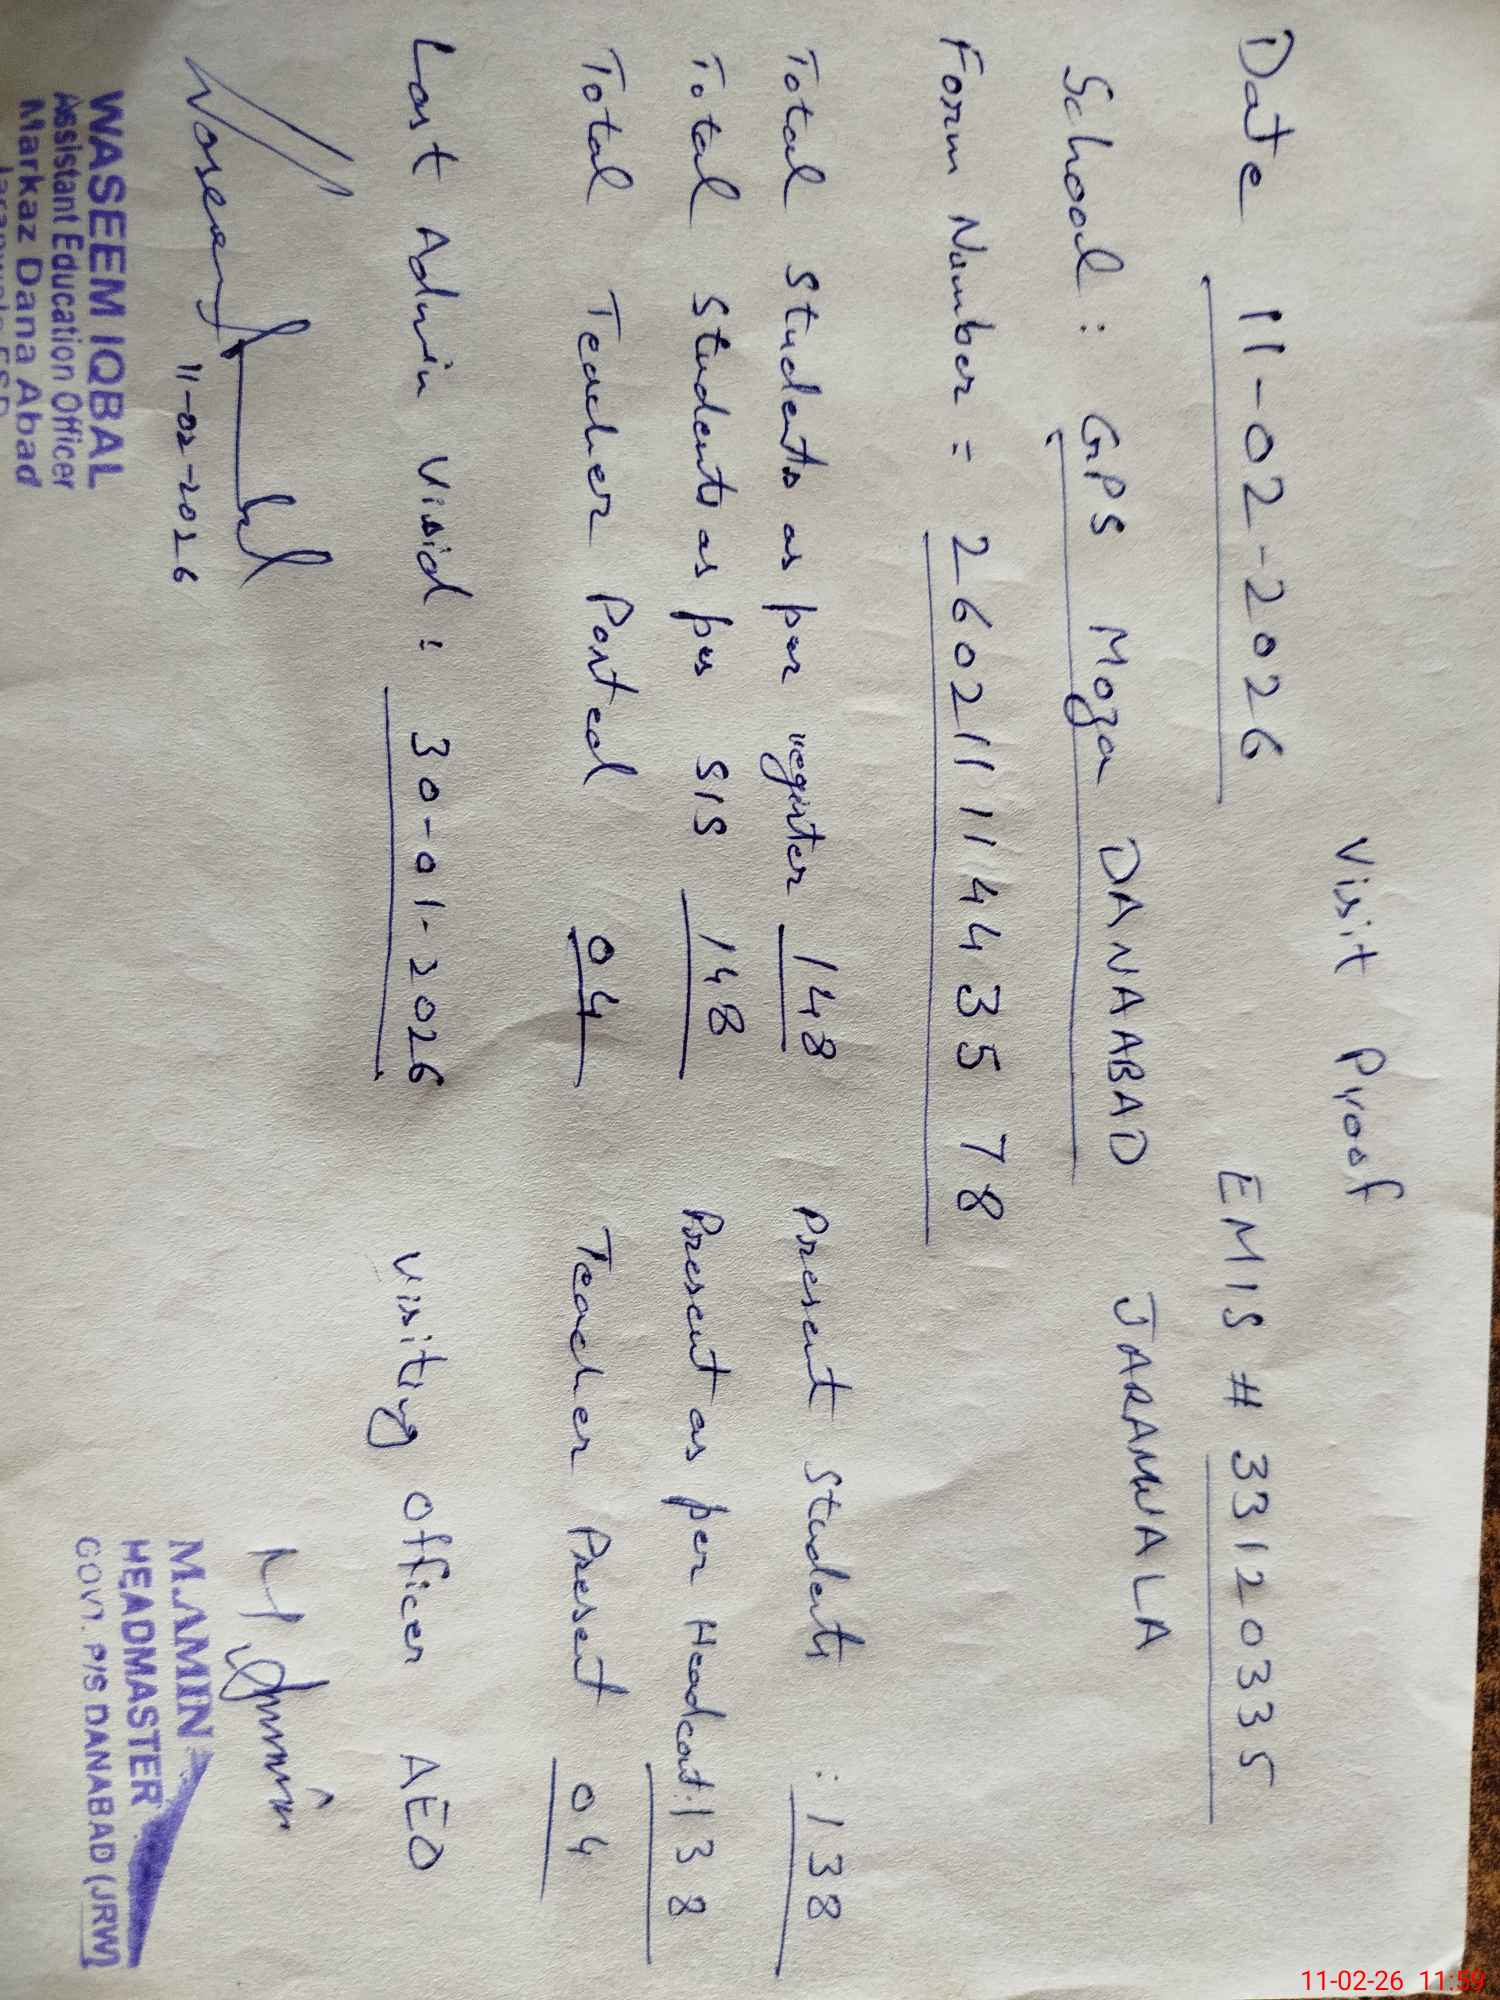 Visit Proof
Date 11-02-2026 EMIS # 33120335
School: GPS Moza DANAABAD JARANWALA
Form Number = 2602111144 35 78
Total Students as per register 148 Present Students : 138
Total Students as per SIS 148 Present as per Headcout: 138
Total Teacher Posted 04 Teacher Present 04
Last Admin Visid : 30-01-2026 Visiting Officer AEO
Waseem Iqbal
11-02-2026
WASEEM IQBAL
Assistant Education Officer
Markaz Dana Abad
M Amin
M.AMIN
HEADMASTER
GOVT. P/S DANABAD (JRW)
11-02-26 11:59